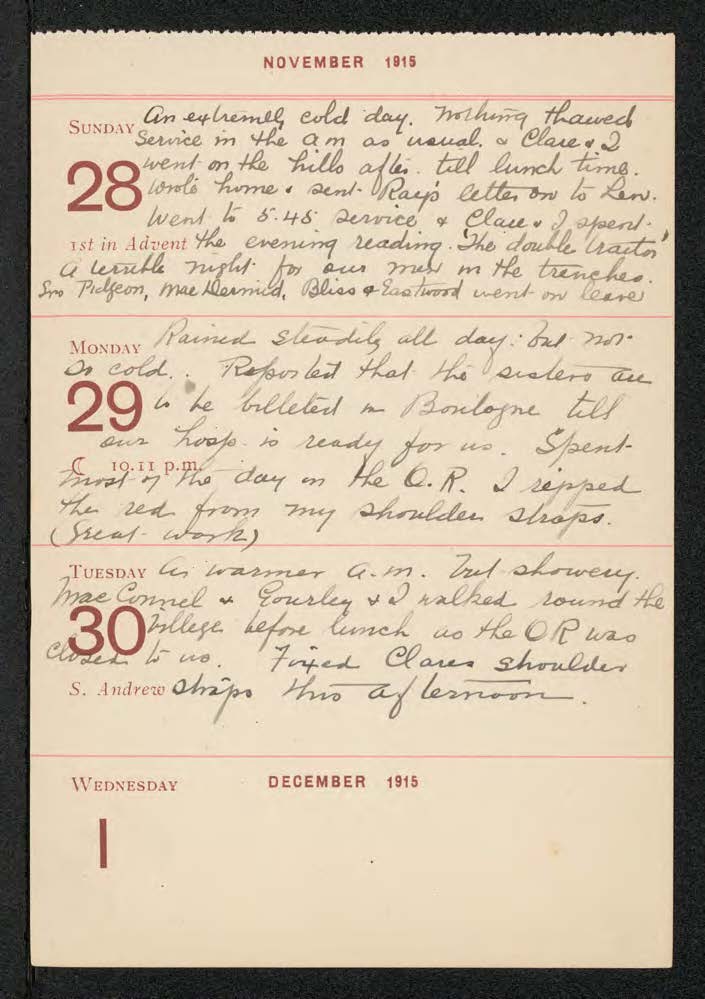 NOVEMBER 1915
SUNDAY An extremely cold day. Nothing thawed
Service in the am as usual. & Clare & I
28 went on the hills after. till lunch time.
Wrote home & sent Ray's letter on to Len.
Went to 5.45 service & Clare & I spent
1st in Advent the evening reading. 'The double traitor'
A terrible night for our men in the trenches.
Pidgeon, MacDermid, Bliss & Eastwood went on leave
MONDAY Rained steadily all day: but not
so cold. Reported that the sisters are
29 to be billeted in Boulogne till
our hosp. is ready for us. Spent
☾ 10.11 p.m.
most of the day in the O.R. I ripped
the red from my shoulder straps.
(Great work)
TUESDAY warmer a.m. but showery.
MacConnel & Gourley & I walked round the
30 village before lunch as the OR was
closed to us. Fixed Clares shoulder
S. Andrew straps this afternoon.
WEDNESDAY DECEMBER 1915
1